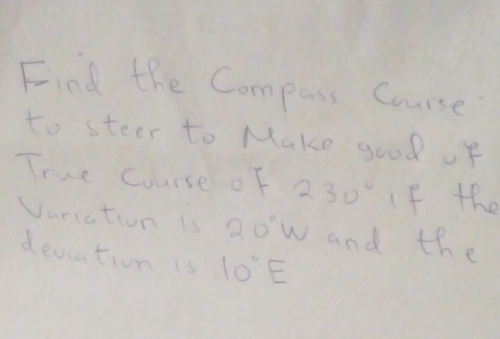 Find the Compass Course
to steer to Make good of
True Course of 230° if the
Variation is 20°W and the
deviation is 10°E